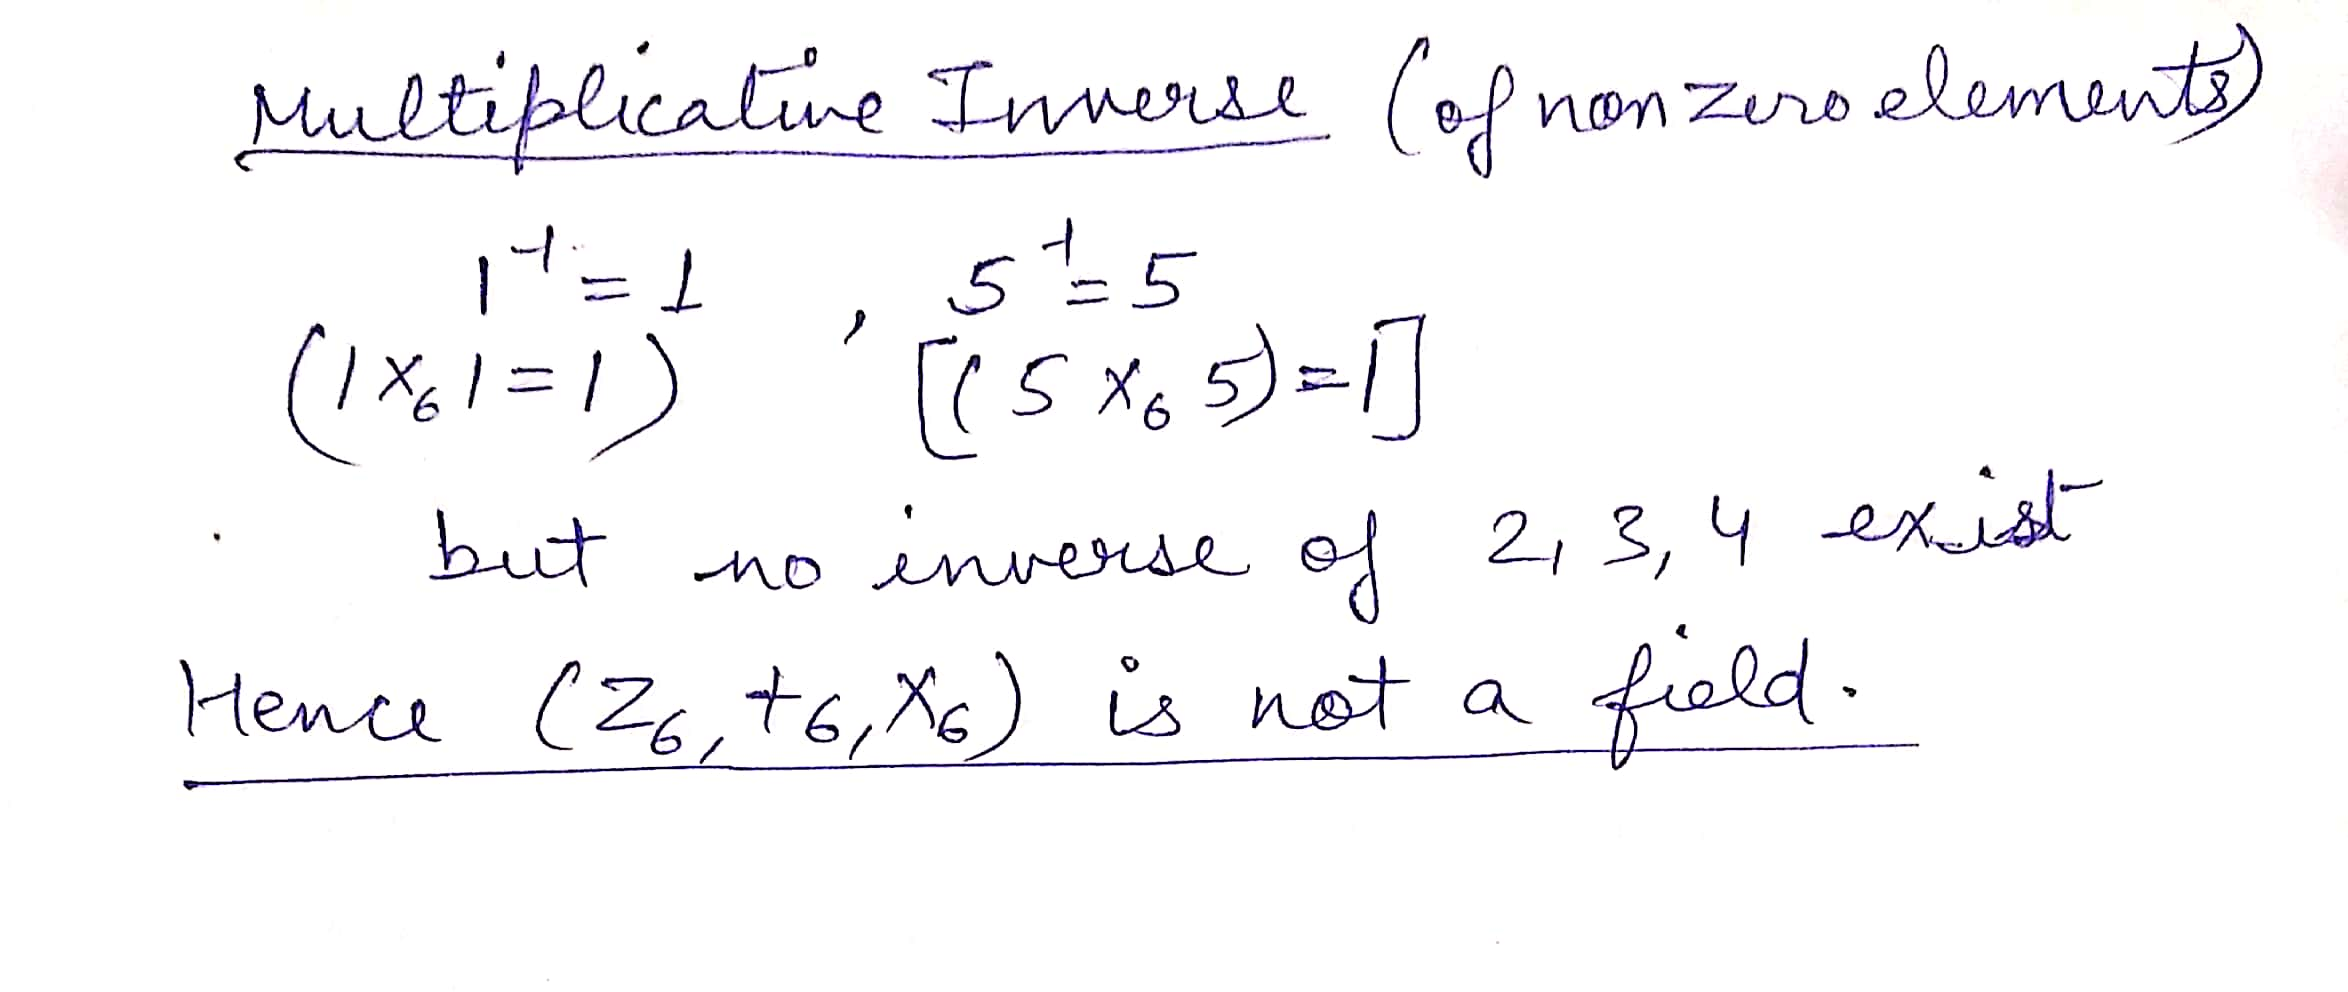 Multiplicative Inverse (of nonzero elements)
1⁻¹ = 1 , 5⁻¹ = 5
(1 ×₆ 1 = 1) [(5 ×₆ 5) = 1]
but no inverse of 2, 3, 4 exist
Hence (Z₆, +₆, ×₆) is not a field.